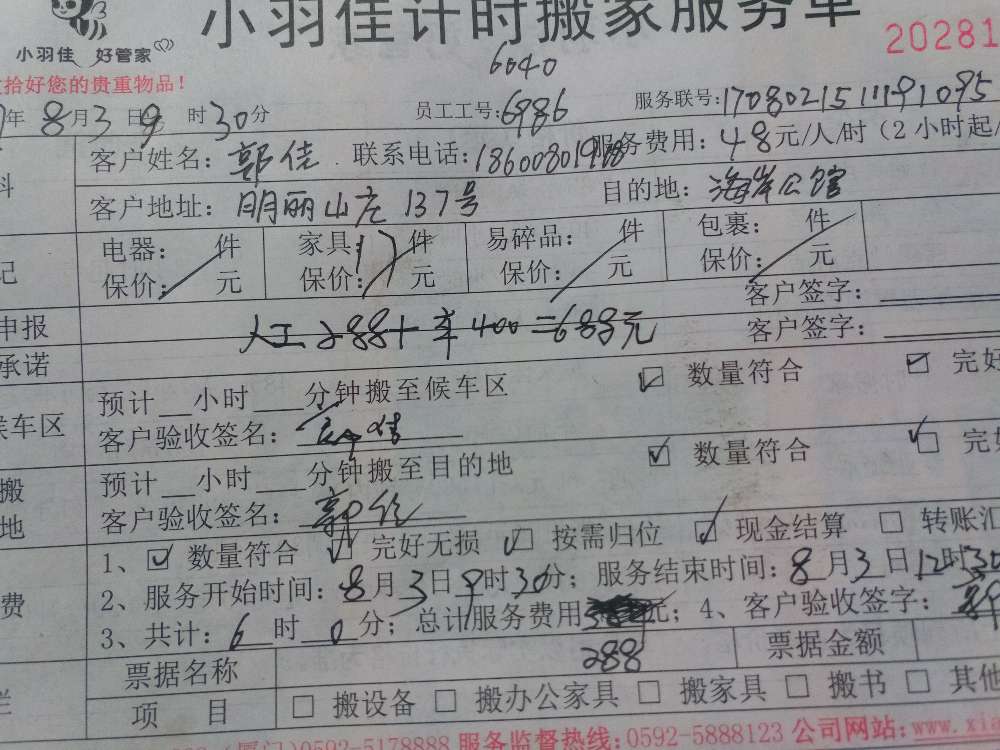 小羽佳计时搬家服务单
小羽佳 好管家
20281
6040
拾好您的贵重物品！
年8月3日9时30分 员工工号：6986 服务联号：1708021511191095
客户姓名：郭佳 联系电话： 服务费用：48元/人/时（2小时起/
客户地址：明丽山庄137号 目的地：海岸公馆
电器： 件 家具： 件 易碎品： 件 包裹： 件
保价： 元 保价： 元 保价： 元 保价： 元
客户签字：
申报 人工288+车400=688元 客户签字：
承诺
候车区 预计__小时___分钟搬至候车区 ☑ 数量符合 ☑ 完好
客户验收签名：
搬 预计__小时___分钟搬至目的地 ☑ 数量符合 ☑ 完好
地 客户验收签名：郭佳
1、☑ 数量符合 ☑ 完好无损 ☑ 按需归位 ☑ 现金结算 □ 转账汇
费 2、服务开始时间：8月3日9时30分；服务结束时间：8月3日12时30
3、共计：6时0分；总计服务费用 元；4、客户验收签字：
288
票据名称 票据金额
项 目 □ 搬设备 □ 搬办公家具 □ 搬家具 □ 搬书 □ 其他
（厦门）0592-5178888 服务监督热线：0592-5888123 公司网站：www.xia